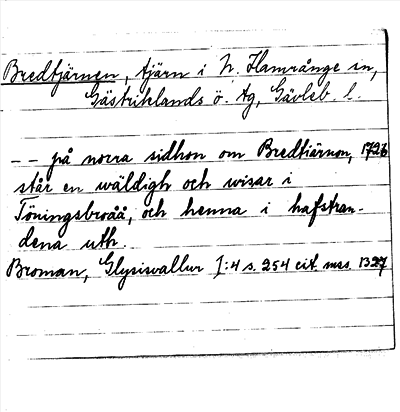 Bredtjärnen, tjärn i N. Hamrånge sn,
Gästriklands ö. tg, Gävleb. l.
-- på norra sidhon om Bredtiärnon, 1726
står en wäldigh och wisar i
Töningsbroåå, och henna i hafstran-
dena uth.
Broman, Glysisvallur I:4 s. 254 cit. mss. 1327